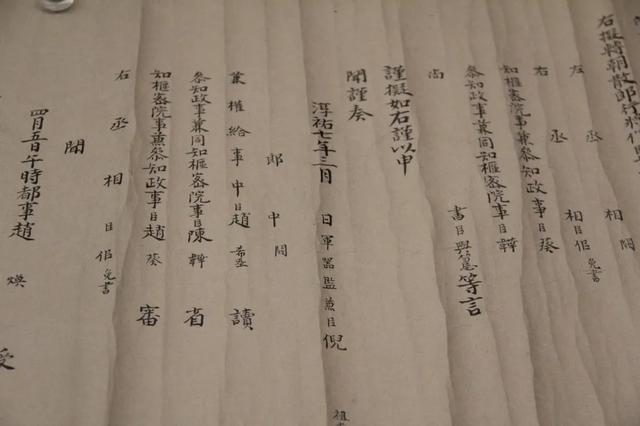 右擬轉朝散郎
左丞相闕
右丞相臣侣免書
參知政事臣葵
知樞密院事兼參知政事
參知政事兼同知樞密院事臣韡
尚書臣與𥲅等言
謹擬如右謹以申
聞謹奏
淳祐七年三月 日軍器監兼臣倪
郎中闕
兼權給事中臣趙希𡌴讀
參知政事兼同知樞密院事臣陳韡省
知樞密院事兼參知政事臣趙葵審
右丞相臣侣免書
聞
四月五日午時都事趙煥
受